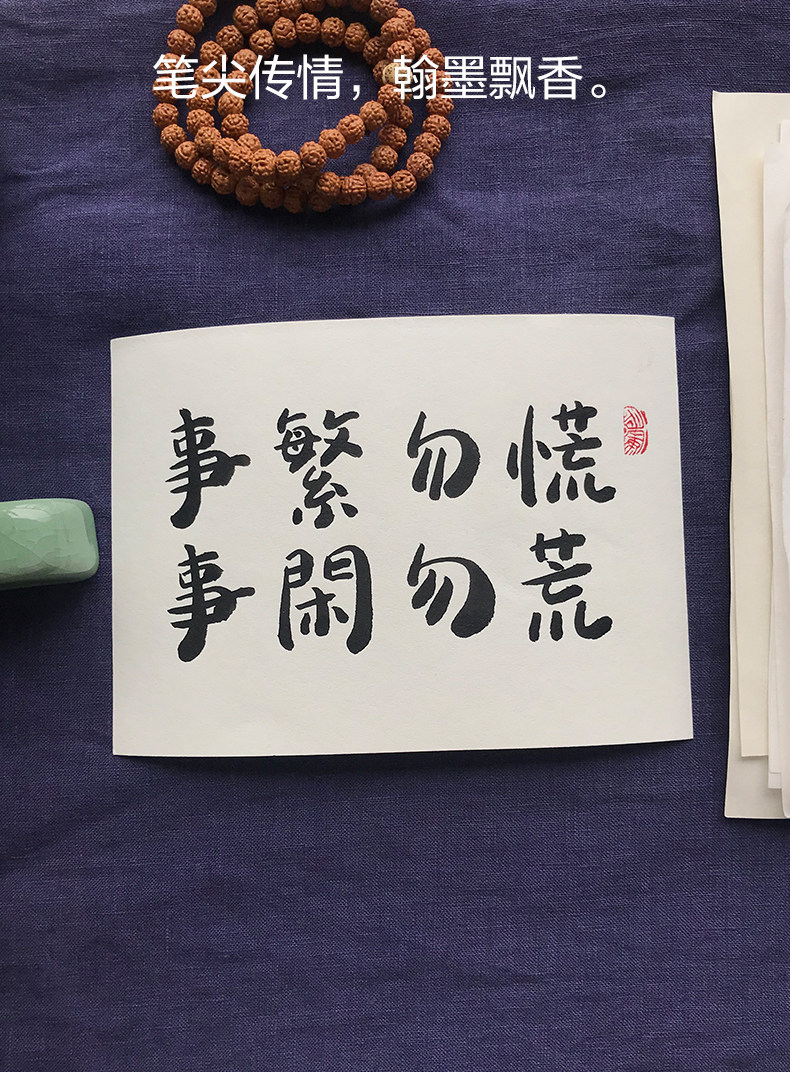 笔尖传情，翰墨飘香。
事繁勿慌
事閑勿荒